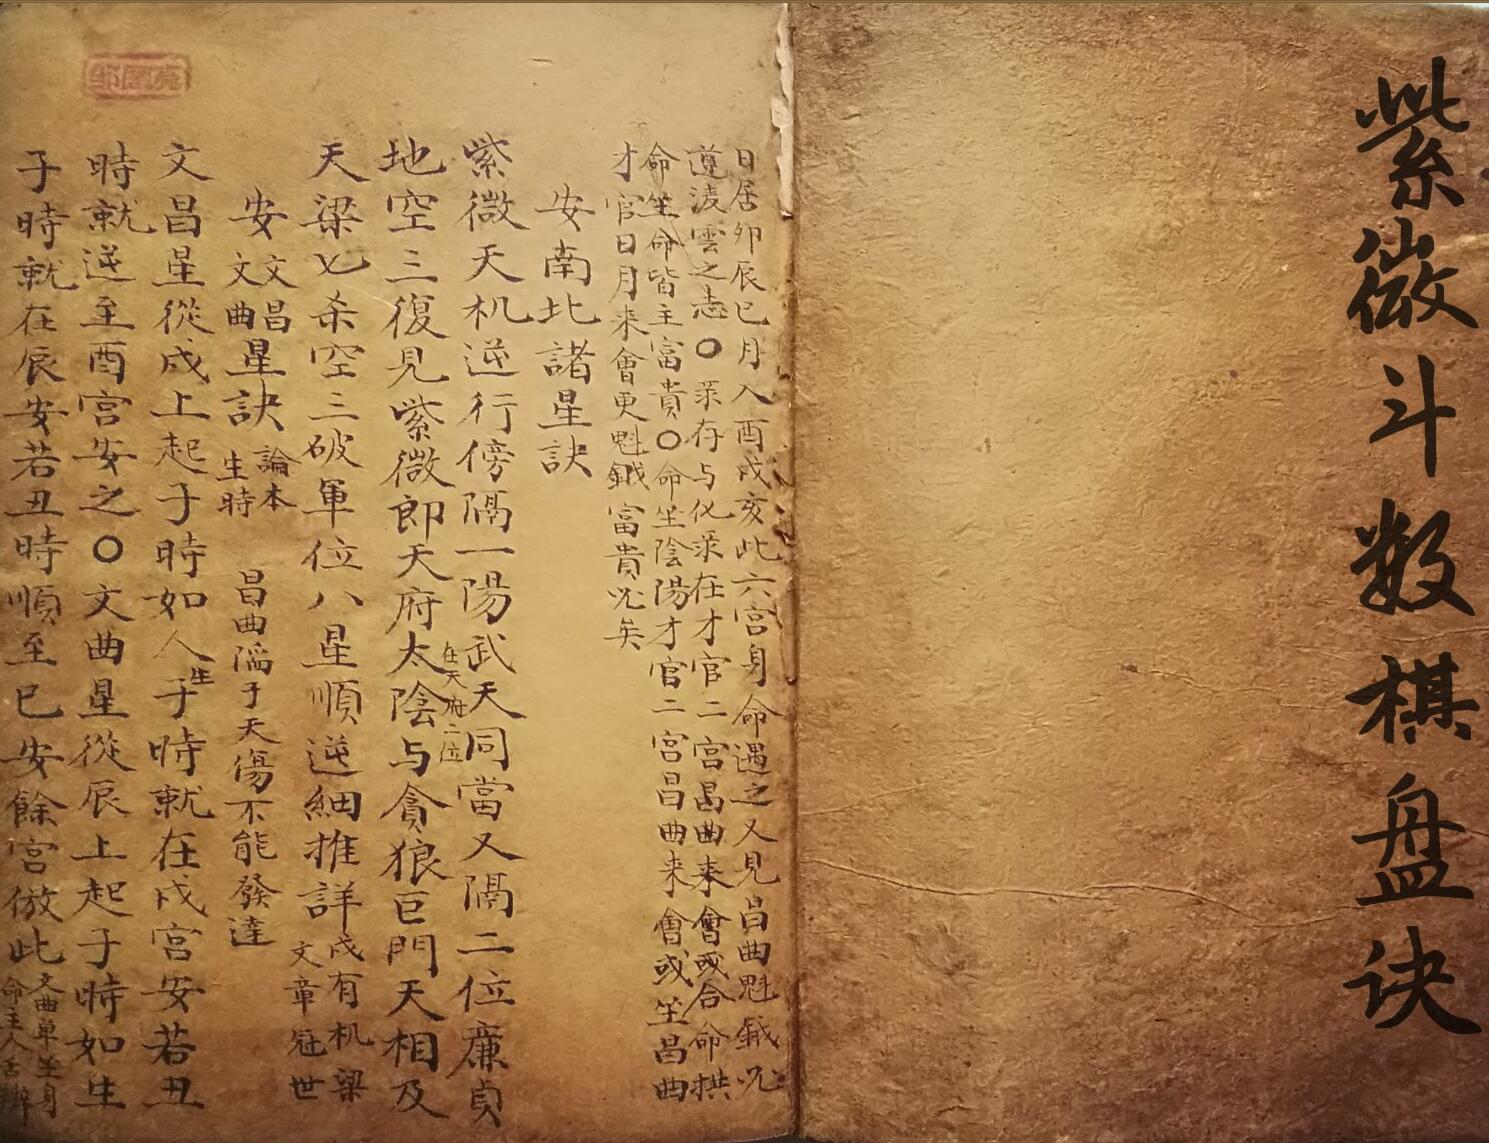 紫微斗数棋盘诀
日居卯辰巳月入酉戌亥此六宮身命遇之又見昌曲魁鉞
遵凌雲之志○录存与化录在才官二宮昌曲来會或合命拱
命坐命皆主富貴○命坐陰陽才官二宮昌曲来會或坐昌曲
才官日月来會更魁鉞富貴必矣
安南北諸星訣
紫微天机逆行傍隔一陽武天同當又隔二位廉貞
地空三復見紫微郎天府太陰与貪狼巨門天相及
在天府二位
天梁七杀空三破軍位八星順逆細推詳
戌有机梁
文章冠世
安文昌文曲星訣
論本生時
昌曲陷于天傷不能發達
文昌星從戌上起子時如人生子時就在戌宮安若丑
時就逆至酉宮安之○文曲星從辰上起子時如生
子時就在辰安若丑時順至巳安餘宮倣此
文曲單坐身
命主人舌辨